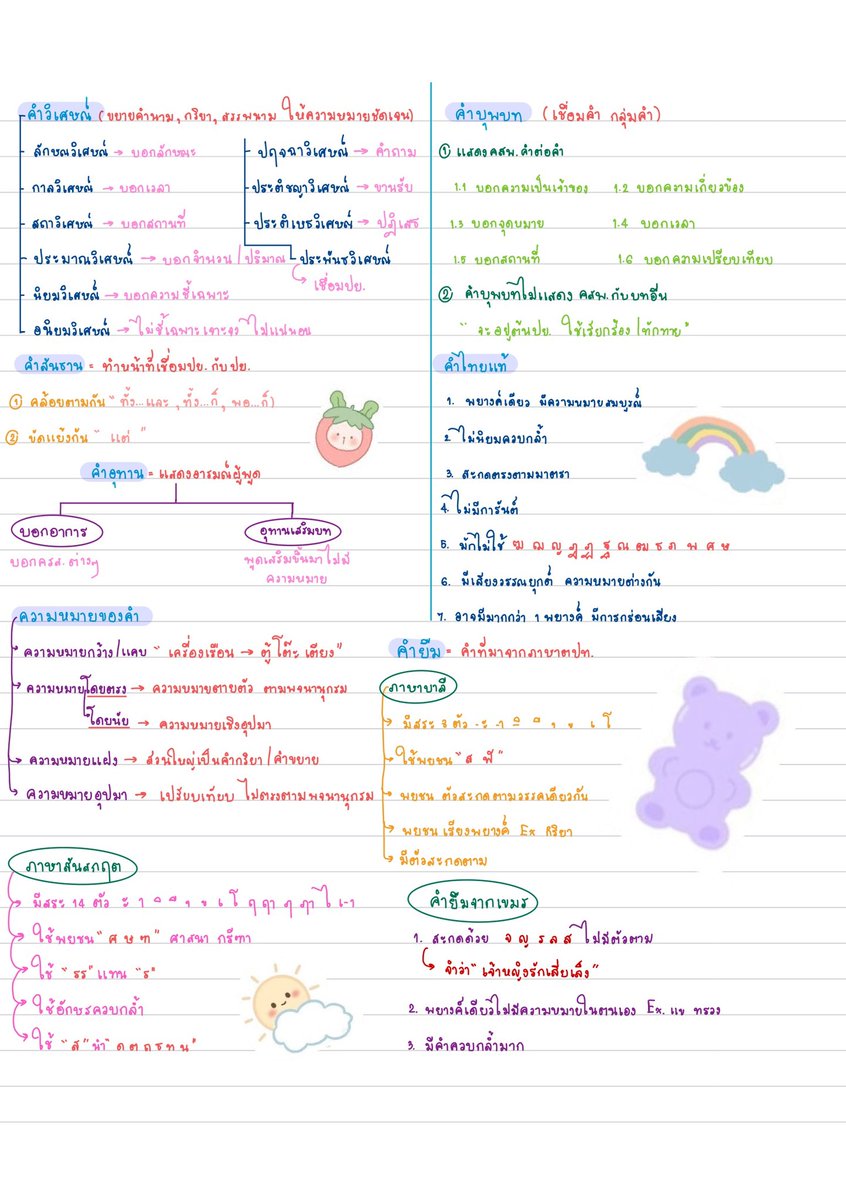 คำวิเศษณ์ (ขยายคำนาม, กริยา, สรรพนาม ให้ความหมายชัดเจน)
ลักษณวิเศษณ์ → บอกลักษณะ
กาลวิเศษณ์ → บอกเวลา
สถาวิเศษณ์ → บอกสถานที่
ประมาณวิเศษณ์ → บอกจำนวน/ปริมาณ
นิยมวิเศษณ์ → บอกความชี้เฉพาะ
อนิยมวิเศษณ์ → ไม่ชี้เฉพาะเจาะจง ไม่แน่นอน
ปฤจฉาวิเศษณ์ → คำถาม
ประติชญาวิเศษณ์ → ขานรับ
ประติเษธวิเศษณ์ → ปฏิเสธ
ประพันธวิเศษณ์
เชื่อมปย.
คำสันธาน = ทำหน้าที่เชื่อมปย. กับปย.
① คล้อยตามกัน "ทั้ง...และ , ทั้ง...ก็ , พอ...ก็)
② ขัดแย้งกัน " แต่ "
คำอุทาน = แสดงอารมณ์ผู้พูด
บอกอาการ
บอกครส.ต่างๆ
อุทานเสริมบท
พูดเสริมขึ้นมาไม่มี
ความหมาย
คำบุพบท (เชื่อมคำ กลุ่มคำ)
① แสดงคสพ.คำต่อคำ
1.1 บอกความเป็นเจ้าของ 1.2 บอกความเกี่ยวข้อง
1.3 บอกจุดหมาย 1.4 บอกเวลา
1.5 บอกสถานที่ 1.6 บอกความเปรียบเทียบ
② คำบุพบทไม่แสดง คสพ.กับบทอื่น
" จะอยู่ต้นปย. ใช้เรียกร้อง/ทักทาย"
คำไทยแท้
1. พยางค์เดียว มีความหมายสมบูรณ์
2. ไม่นิยมควบกล้ำ
3. สะกดตรงตามมาตรา
4. ไม่มีการันต์
5. มักไม่ใช้ ฆ ฌ ญ ฎ ฏ ฐ ณ ฒ ธ ภ ศ ษ
6. มีเสียงวรรณยุกต์ ความหมายต่างกัน
7. อาจมีมากกว่า 1 พยางค์ มีการกร่อนเสียง
ความหมายของคำ
ความหมายกว้าง/แคบ " เครื่องเรือน → ตู้ โต๊ะ เตียง"
ความหมายโดยตรง → ความหมายตายตัว ตามพจนานุกรม
โดยนัย → ความหมายเชิงอุปมา
ความหมายแฝง → ส่วนใหญ่เป็นคำกริยา/คำขยาย
ความหมายอุปมา → เปรียบเทียบ ไม่ตรงตามพจนานุกรม
คำยืม = คำที่มาจากภาษาตปท.
ภาษาบาลี
มีสระ 8 ตัว -ะ -า -ิ -ี -ุ -ู เ โ
ใช้พยชน "ส ฬ"
พยชน ตัวสะกดตามวรรคเดียวกัน
พยชนเรียงพยางค์ Ex กิริยา
มีตัวสะกดตาม
ภาษาสันสกฤต
มีสระ 14 ตัว -ะ -า -ิ -ี -ุ -ู เ โ ฤ ฤๅ ฦ ฦๅ ไ เ-า
ใช้พยชน "ศ ษ ฑ" ศาสนา กรีฑา
ใช้ "รร" แทน "ร"
ใช้อักษรควบกล้ำ
ใช้ "ส" นำ" ด ต ถ ธ ท น"
คำยืมจากเขมร
1. สะกดด้วย จ ญ ร ล ส ไม่มีตัวตาม
จำว่า "เจ้าหญิงรักเสี่ยเล็ง"
2. พยางค์เดียวไม่มีความหมายในตนเอง Ex. แข ทรวง
3. มีคำควบกล้ำมาก